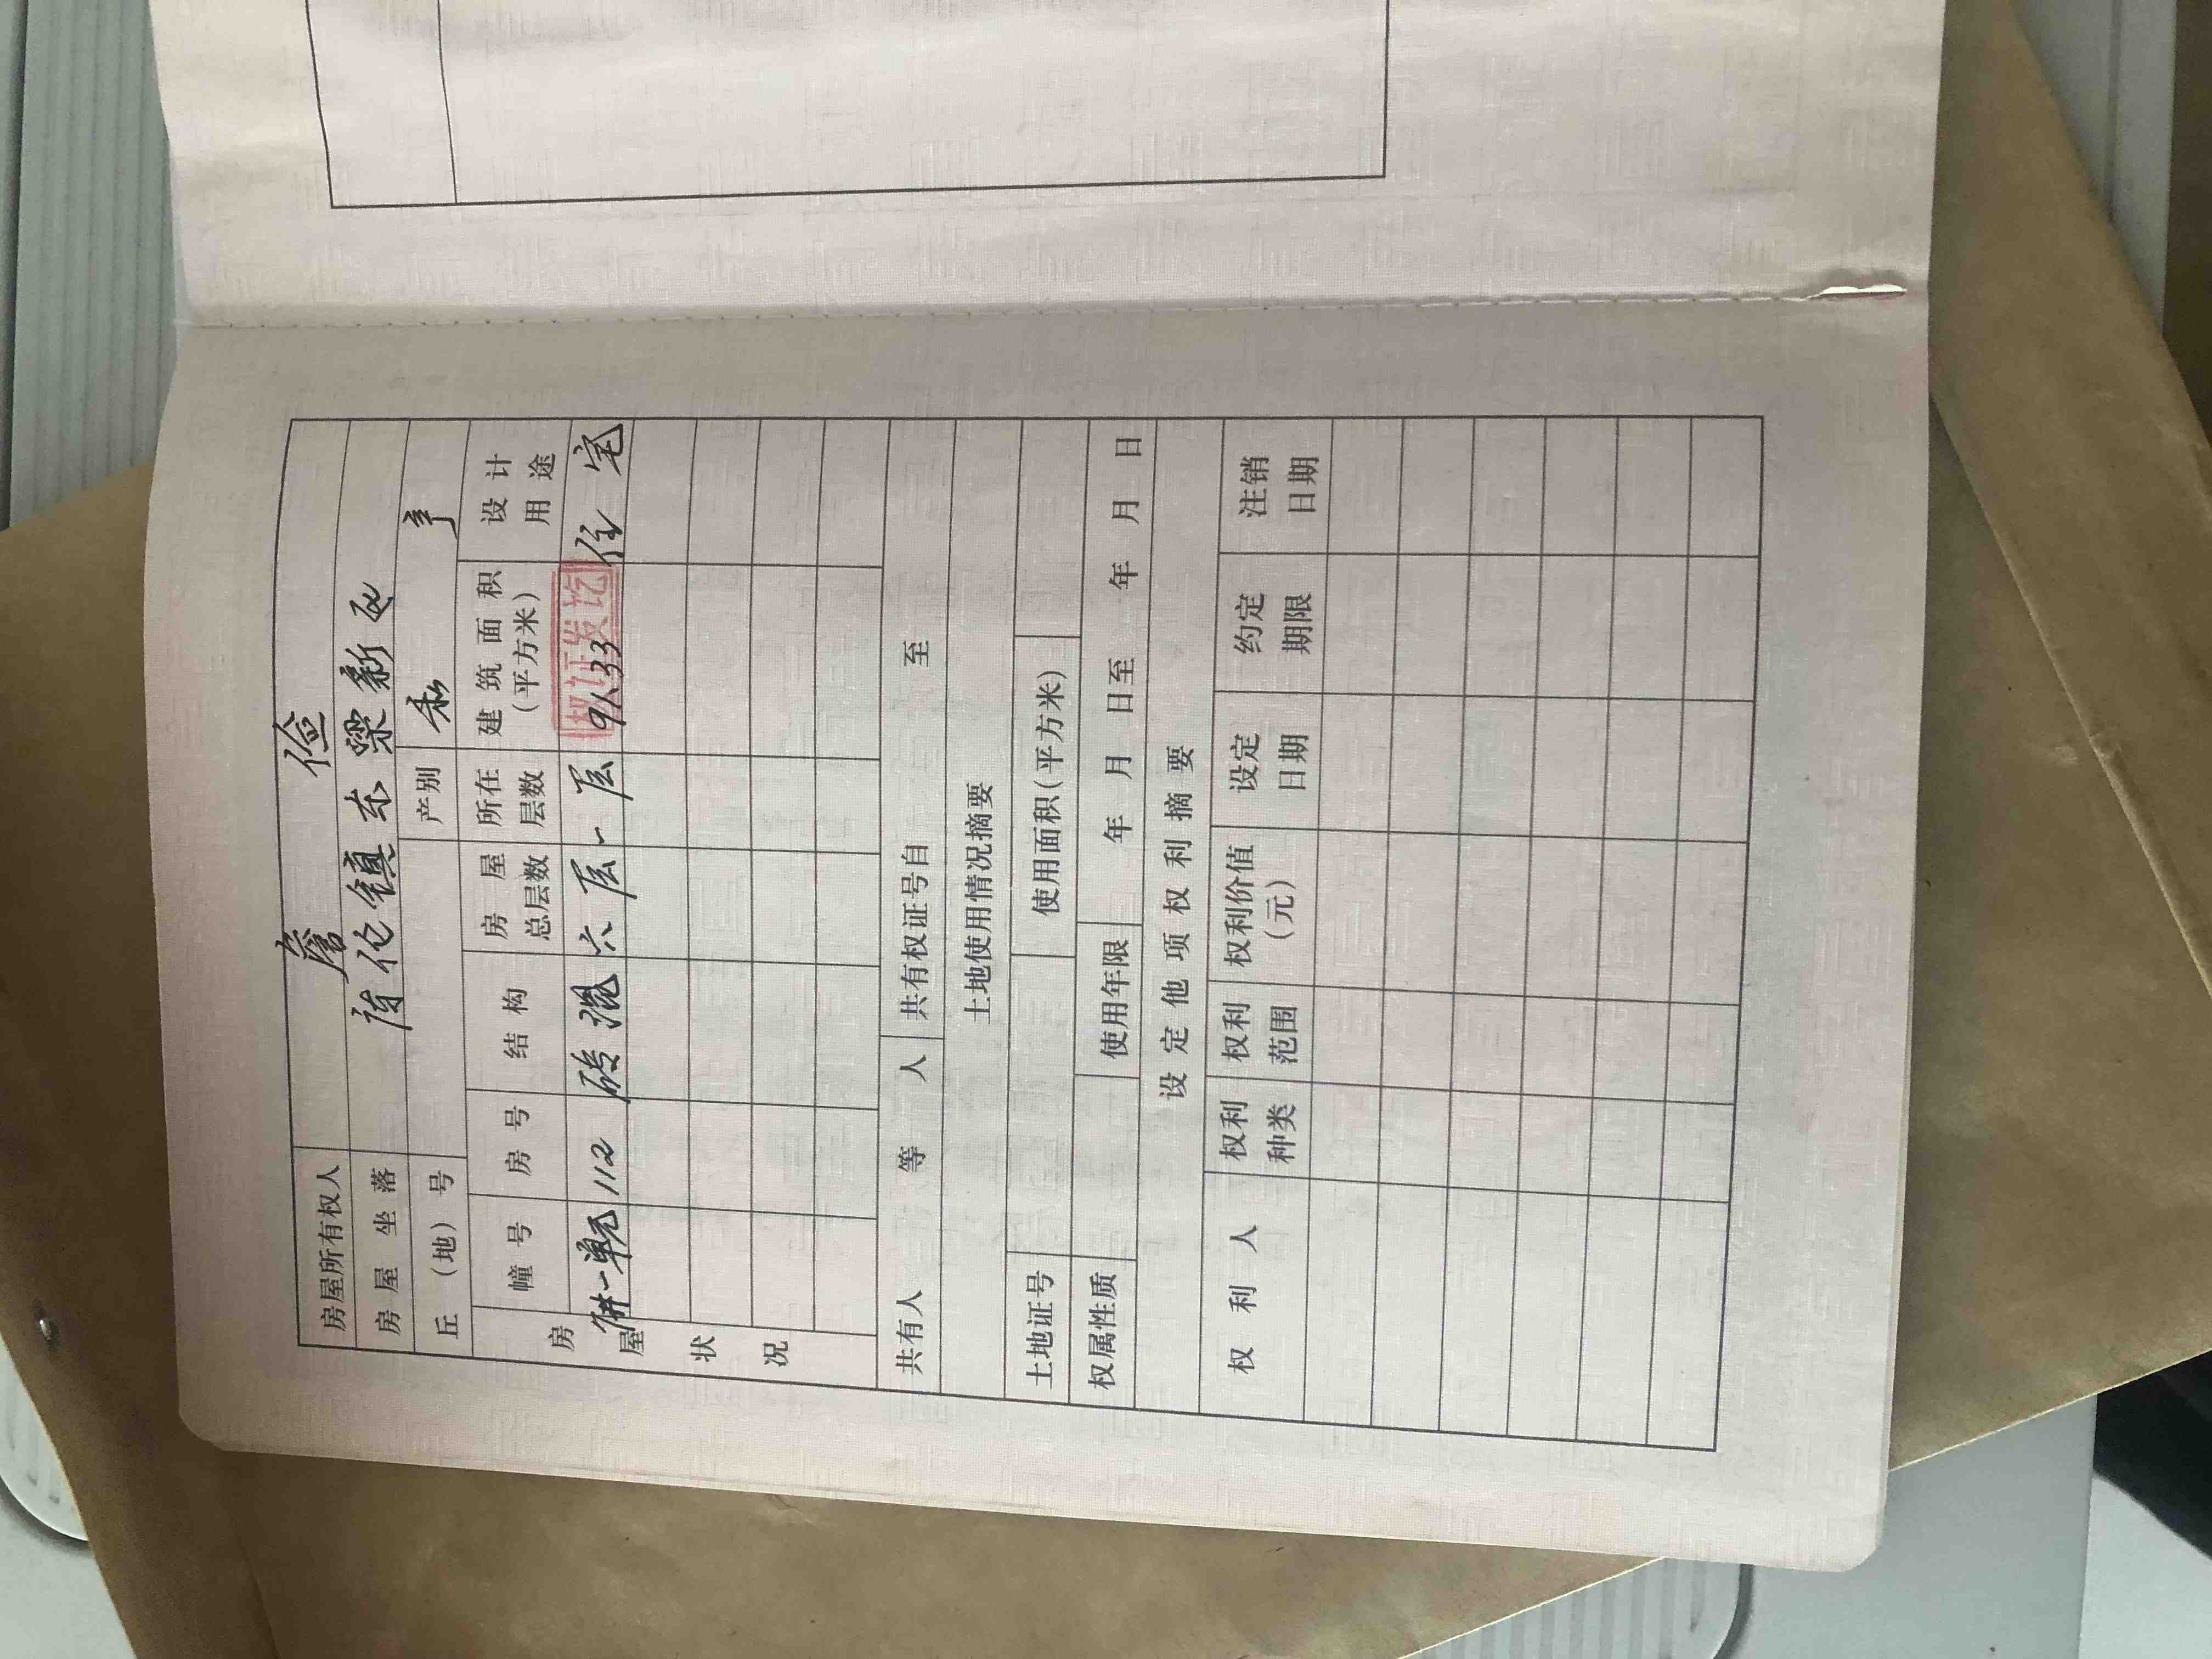 房屋所有权人 詹俭
房屋坐落 陌伦镇东梁新区
丘(地)号 产别 私产
房屋状况 幢号 房号 结构 房屋总层数 所在层数 建筑面积(平方米) 设计用途
一单元 112 砖混 六层 一层 91.33 住宅
权证发讫
共有人 等 人 共有权证号自 至
土地使用情况摘要
土地证号 使用面积(平方米)
权属性质 使用年限 年 月 日至 年 月 日
设定他项权利摘要
权利人 权利种类 权利范围 权利价值(元) 设定日期 约定期限 注销日期